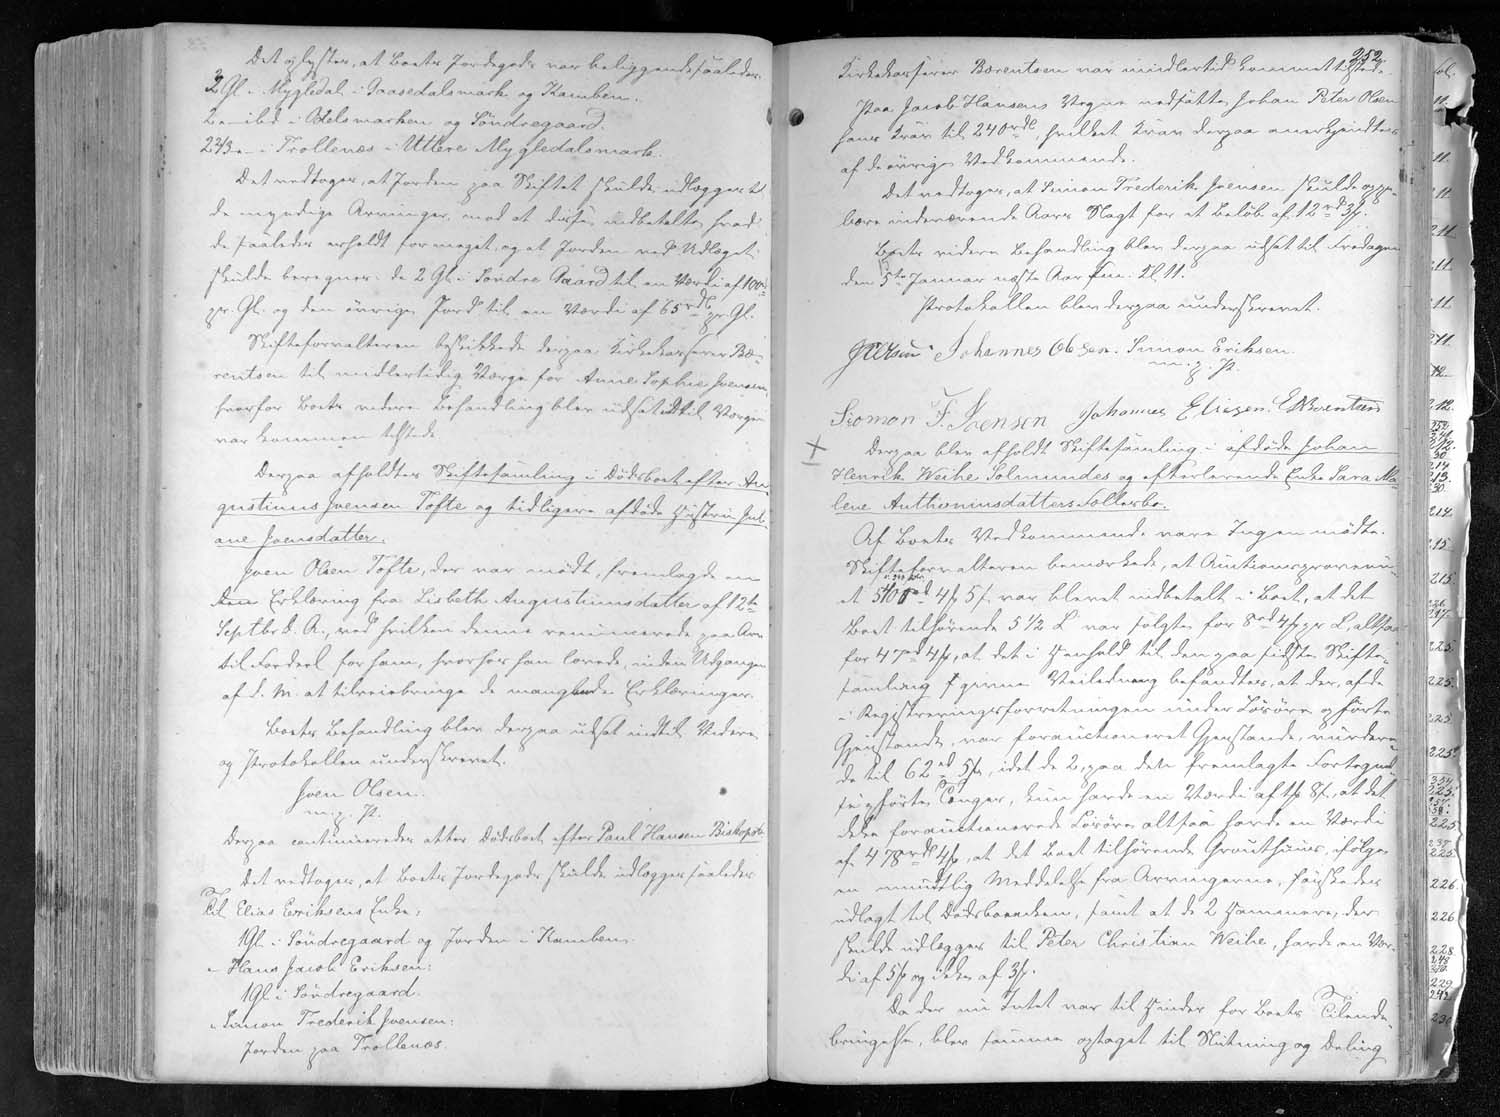 Det oplystes, at Boets Jordegods var beliggende saaledes:
2 Gl. i Mygledal i Gaasedalsmark og Kamben.
2 - ibd i Ødelsmarken og Söndregaard.
2 2/3 - i Trollenæs i Uttere Mygledalsmark.
Det vedtoges, at Jorden paa Skiftet skulde udlægges til
de myndige Arvinger, mod at disse indbetalte, hvad
de saaledes erholdt formeget, og at Jorden ved Udlæget
skulde beregnes: de 2 Gl. i Söndre Gaard til en Værdi af 100 rd
pr. Gl. og den övrige Jord til en Værdi af 65 rdl. pr Gl.
Skifteforvalteren beskikkede derpaa Kirkekasserer Bæ-
rentsen til midlertidig Værge for Anne Sophie Joensen,
hvorfor Boets videre Behandling blev udsat til Værgen
var kommen tilstede.
Derpaa afholdtes Skiftesamling i Dödsboet efter Au-
gustinus Joensen Töfte og tidligere afdöde Hustru Juli-
ane Joensdatter.
Joen Olsen Töfte, der var mödt, fremlagde en
Erklæring fra Lisbeth Augustinusdatter af 12te
Septbr d. A., ved hvilken denne renuncerede paa Arv
til Fordeel for ham, hvorhos han lovede, inden Udgangen
af d. M. at tilveiebringe de manglende Erklæringer.
Boets Behandling blev derpaa udsat indtil Videre
og Protokollen underskrevet.
Joen Olsen.
m. p. P.
Derpaa continueredes atter Dödsboet efter Paul Hansen Biskopstö
Det vedtoges, at Boets Jordegods skulde udlægges saaledes
Til Elias Eriksens Enke:
1 Gl. i Söndregaard og Jorden i Kamben.
" Hans Jacob Eriksen:
1 Gl i Söndregaard.
" Simon Frederik Joensen:
Jorden paa Trollenæs.
252.
Kirkekasserer Bærentsen var imidlertid kommet tilstede.
Paa Jacob Hansens Vegne nedsatte Johan Peter Olsen
hans Krav til 240 rdl, hvilket Krav derpaa anerkjendtes
af de övrige Vedkommende.
Det vedtoges, at Simon Frederik Joensen skulde oppe-
bære indeværende Aars Slagt for et Belöb af 12 rd 3 ₰ 8
Boets videre Behandling blev derpaa udsat til Fredagen
den 5te Januar næste Aar Fm. Kl 11.
Protokollen blev derpaa underskrevet.
Johannes Olsen. Simon Eriksen.
m. p. P.
Siomon F. Joensen Johannes Eliesen. E Bærentsen
Derpaa blev afholdt Skiftesamling i afdöde Johan
Henrik Weihe Solmundes og efterlevende Enke Sara Ma-
lene Anthoniusdatters Fællesbo.
Af Boets Vedkommende vare Ingen mödte.
Skifteforvalteren bemærkede, at Auctionsprovenu-
et 540 rd 4 ₰ 5 s. var blevet indbetalt i Boet, at det
Boet tilhörende 5 1/2 L var solgte for 8 rd 4 ₰ pr L, altsaa
for 47 rd 4 ₰, at det i Henhold til den paa sidste Skifte-
samling givne Veiledning befandtes, at der, af de
i Registreringsforretningen under Lösöre opförte
Gjenstande, var forauctioneret Gjenstande, vurdere-
de til 62 rd 5 ₰, idet de 2, paa den fremlagte Fortegnel-
se opförte Tönger, kun havde en Værdi af 1 ₰ 8 s., at det
ikke forauctionerede Lösöre altsaa havde en Værdi
af 478 rdl 4 ₰, at det Boet tilhörende Grouthuus, ifölge
en mundtlig Meddelelse fra Arvingerne, önskedes
udlagt til Dödsboenken, samt at de 2 Hammere, der
skulde udlægges til Peter Christian Weihe, havde en Vær-
di af 5 ₰ og ikke af 3 ₰.
Da der nu Intet var til Hinder for Boets Tilende-
bringelse, blev samme optaget til Slutning og Deling